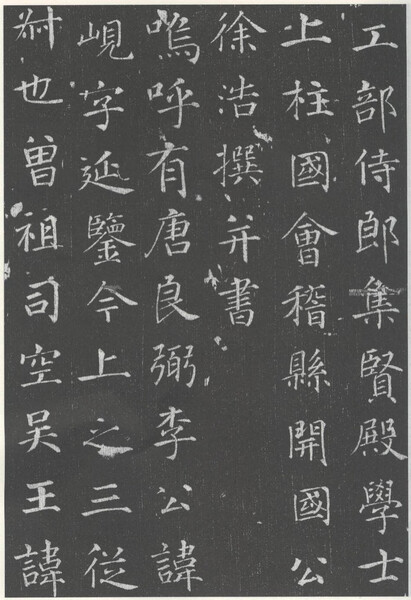 工部侍郎集賢殿學士
上柱國會稽縣開國公
徐浩撰并書
嗚呼有唐良弼李公諱
峴字延鑒今上之三從
叔也曾祖司空吴王諱